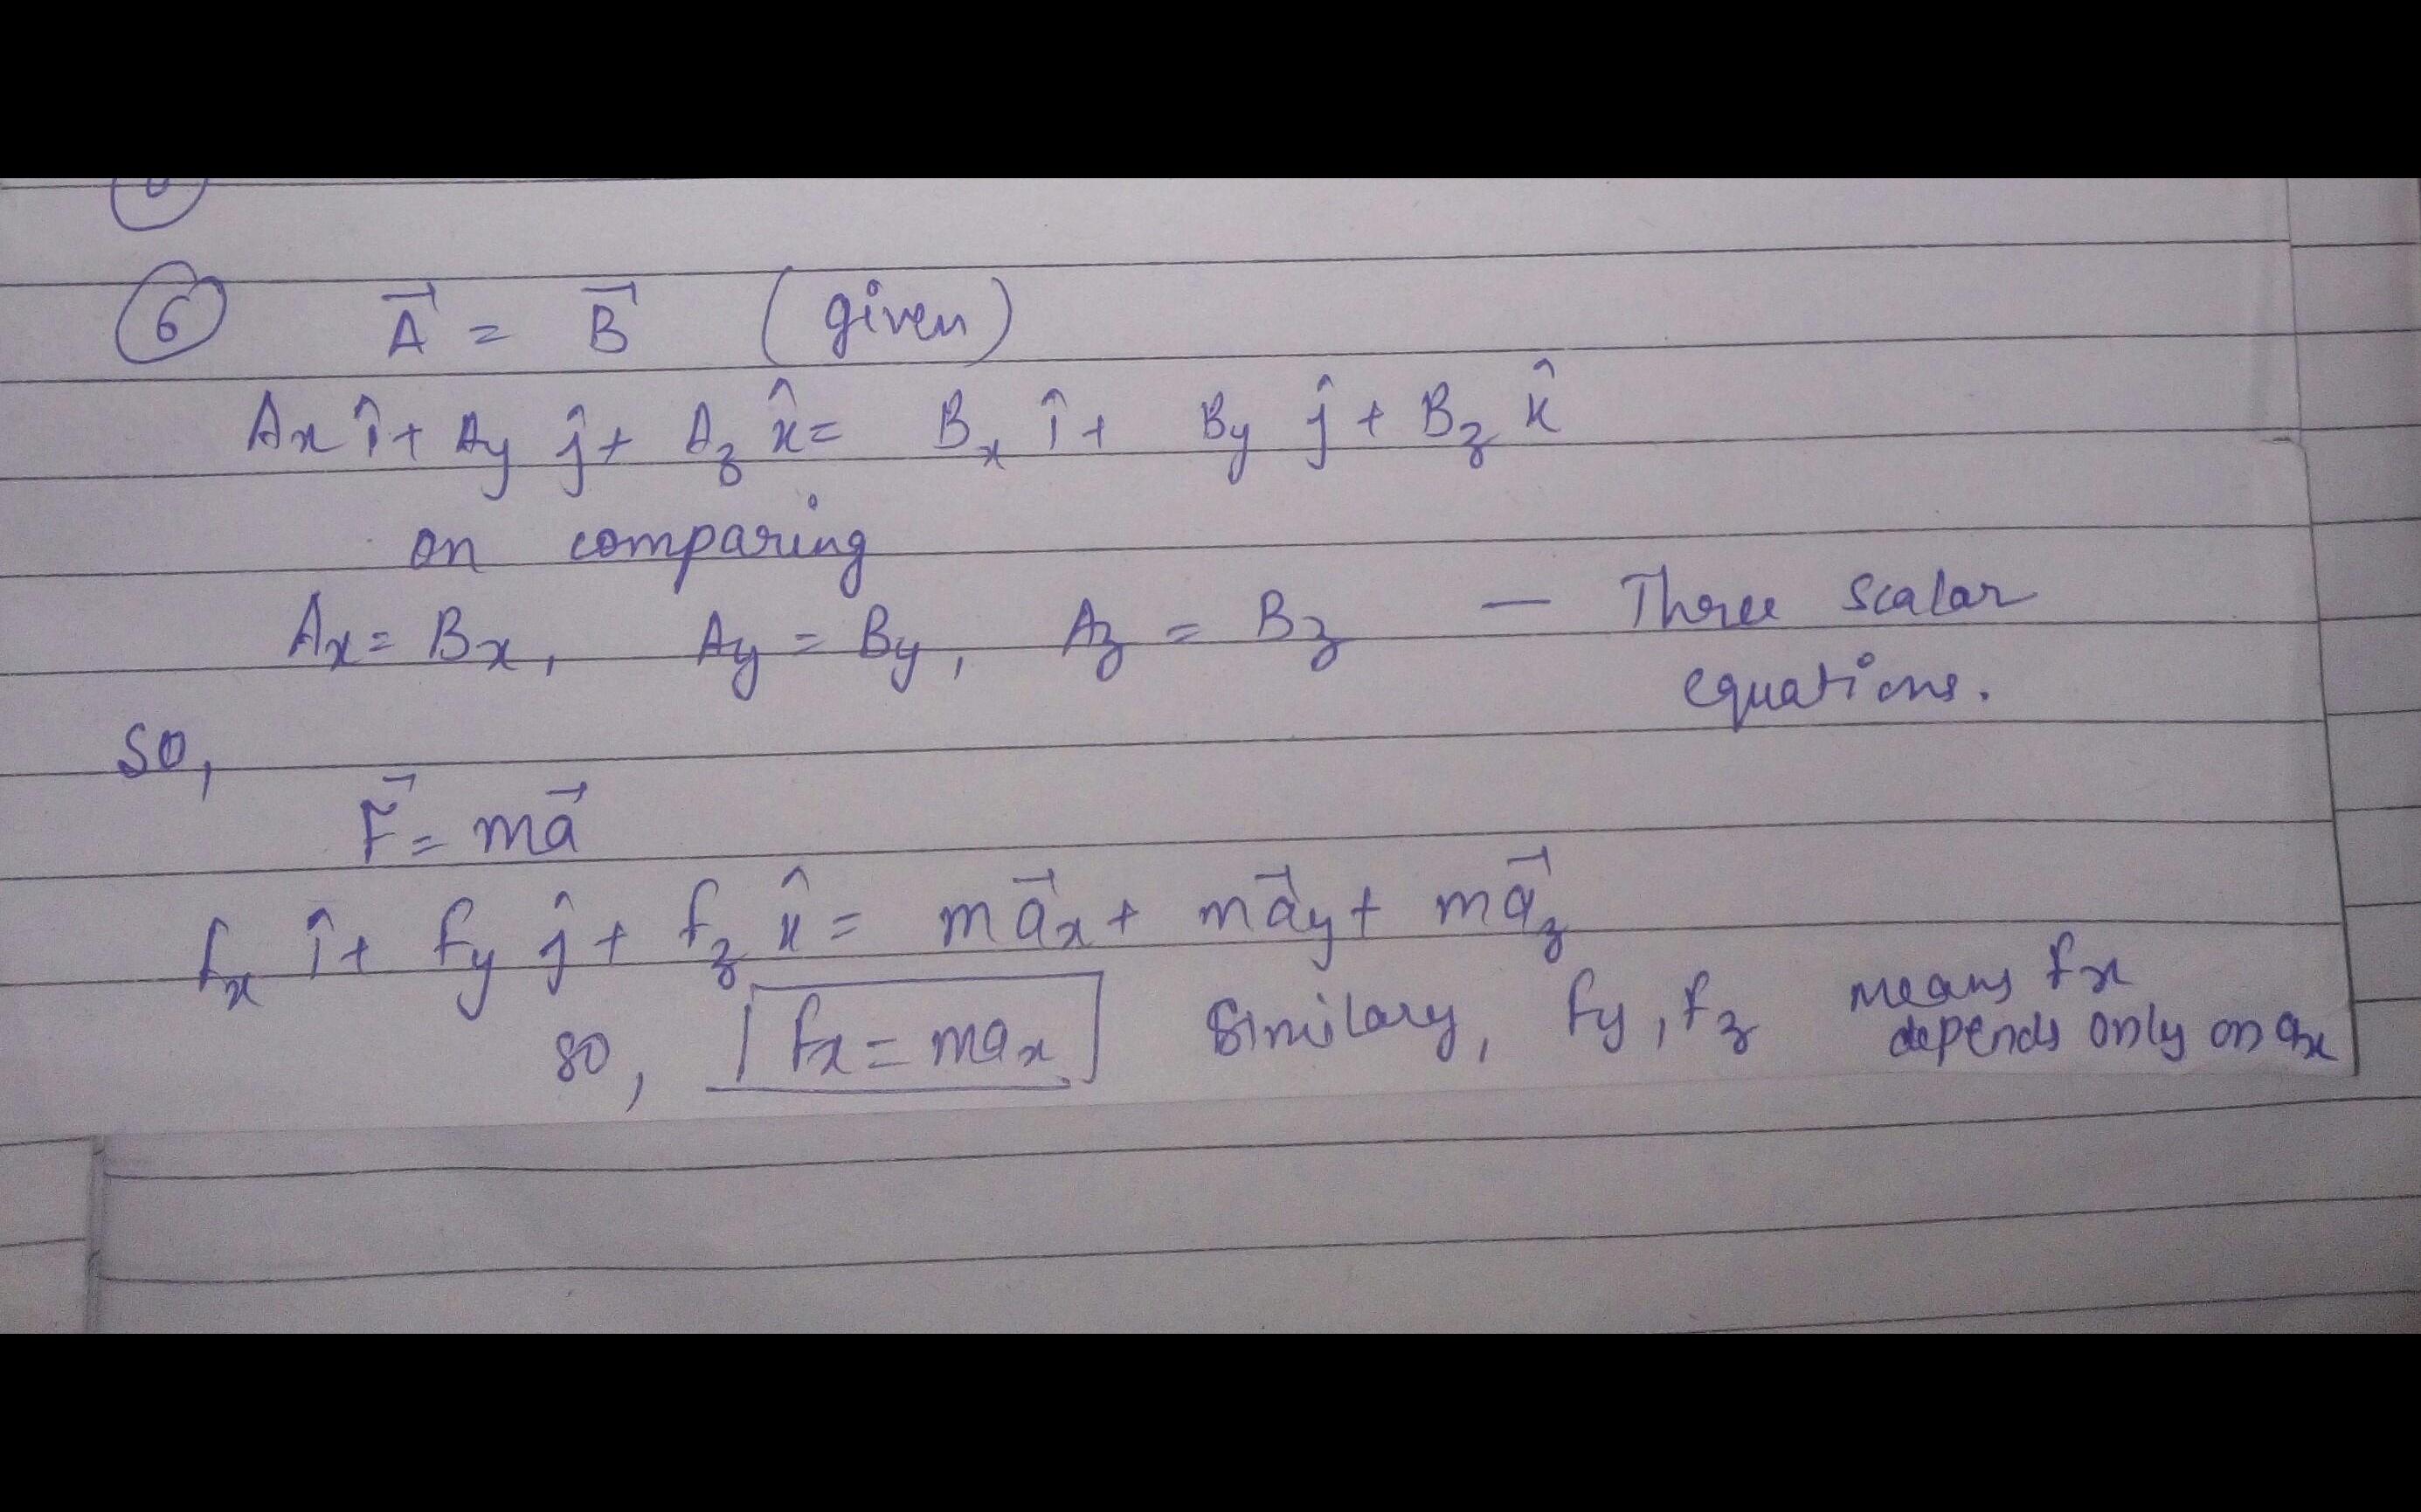 6 A⃗ = B⃗ (given)
Ax î + Ay ĵ + Az k̂ = Bx î + By ĵ + Bz k̂
on comparing
Ax = Bx, Ay = By, Az = Bz — Three scalar
equations.
so,
F⃗ = ma⃗
fx î + fy ĵ + fz k̂ = ma⃗x + ma⃗y + ma⃗z
so, fx = max Similary, fy, fz means fx
depends only on ax